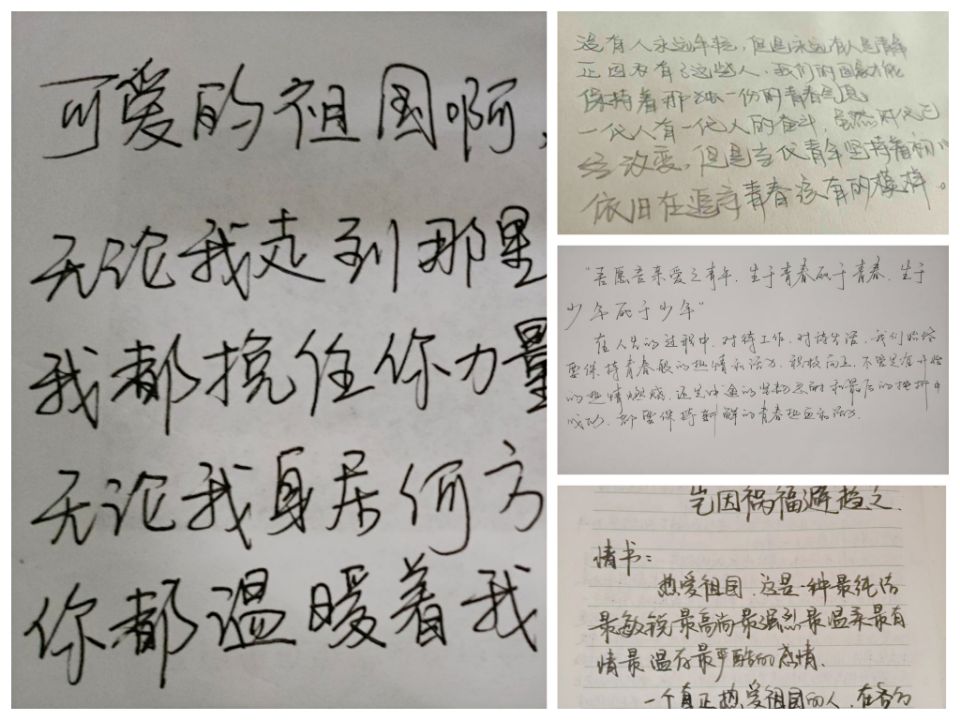 可爱的祖国啊，
无论我走到那里
我都挽住你力量
无论我身居何方
你都温暖着我
没有人永远年轻，但是永远有人是青年
正因为有了这些人，我们的国家才能
保持着那独一份的青春气息
一代人有一代人的奋斗，虽然时代已
经改变，但是当代青年坚持着初心
依旧在追寻青春该有的模样。
"吾愿吾亲爱之青年，生于青春死于青春，生于
少年死于少年"
在人生的过程中，对待工作，对待生活，我们始终
要保持青春般的热情和活力，积极向上，不管是在开始
的热情燃烧，还是中途的坚韧忍耐和最后的拼搏中
成功，都要保持新鲜的青春热血和活力
岂因祸福避趋之
情书：
热爱祖国，这是一种最纯洁
最敏锐最高尚最强烈最温柔最有
情最温存最严酷的感情.
一个真正热爱祖国的人，在各方